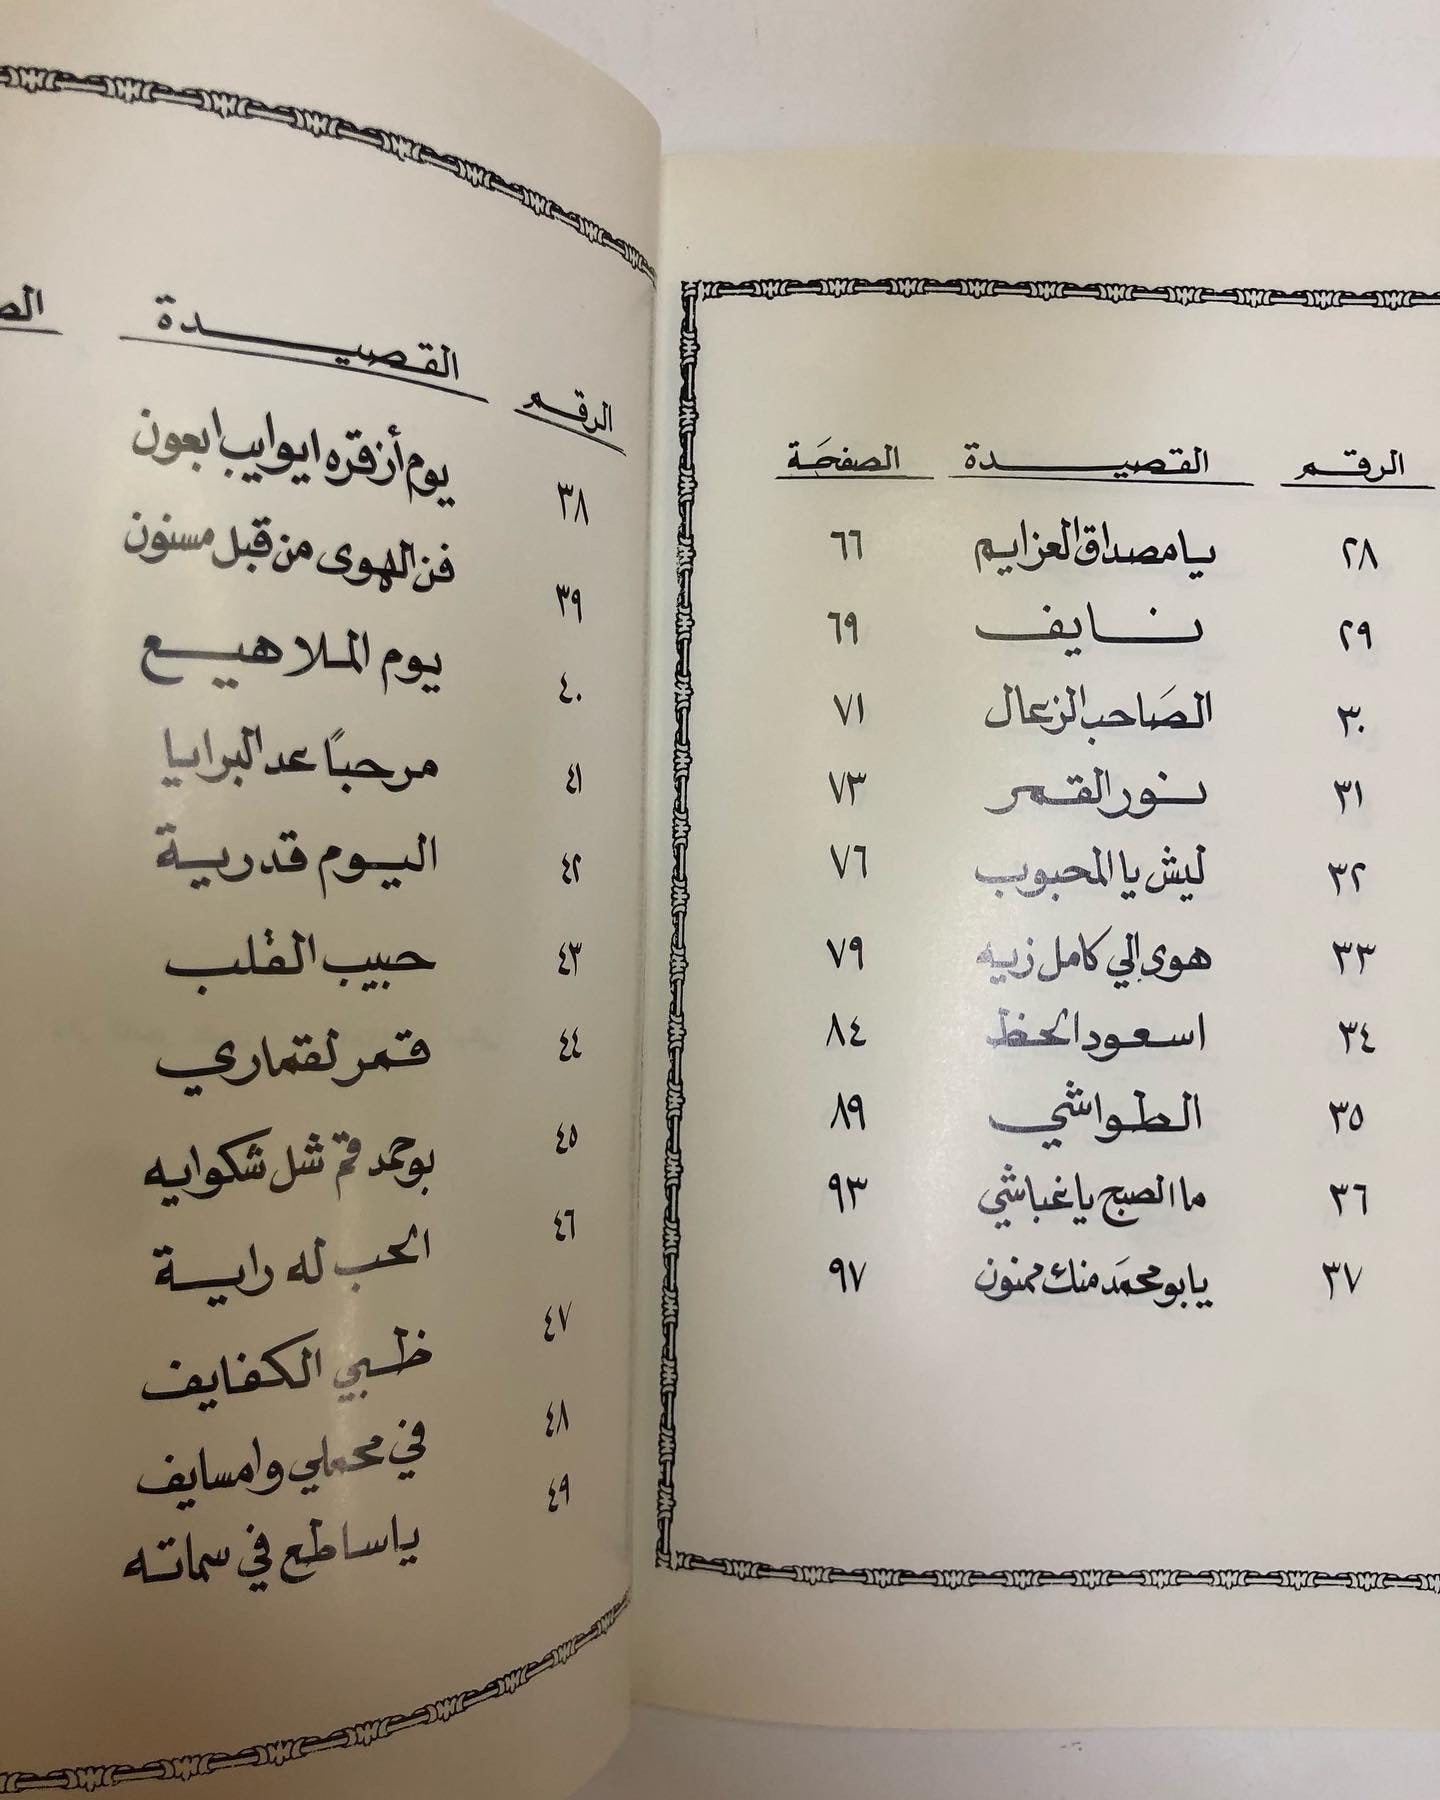 الرقم القصيدة الصفحة
٢٨ يا مصداق العزايم ٦٦
٢٩ نايف ٦٩
٣٠ الصَاحب الزعال ٧١
٣١ نور القمر ٧٣
٣٢ ليش يا المحبوب ٧٦
٣٣ هوى إلي كامل زيه ٧٩
٣٤ اسعود الحظ ٨٤
٣٥ الطواشي ٨٩
٣٦ ما الصبح يا غباشي ٩٣
٣٧ يا بو محمَد منك ممنون ٩٧
الرقم القصيدة
٣٨ يوم أزقره ايوايب ابعون
٣٩ فن الهوى من قبل مسنون
٤٠ يوم الملاهيع
٤١ مرحبًا عد البرايا
٤٢ اليوم قدرية
٤٣ حبيب القلب
٤٤ قمر لقماري
٤٥ بو حمد قم شل شكوايه
٤٦ الحب له راية
٤٧ ظبي الكفايف
٤٨ في محملي وامسايف
٤٩ يا ساطع في سماته